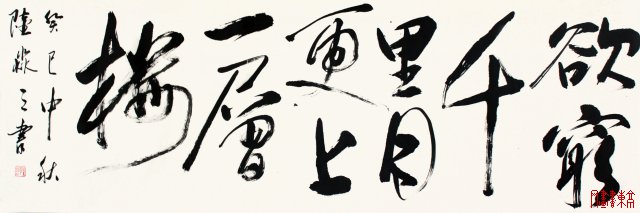 欲窮
千
里目
更上
一層
樓
癸巳中秋
陸縱之書